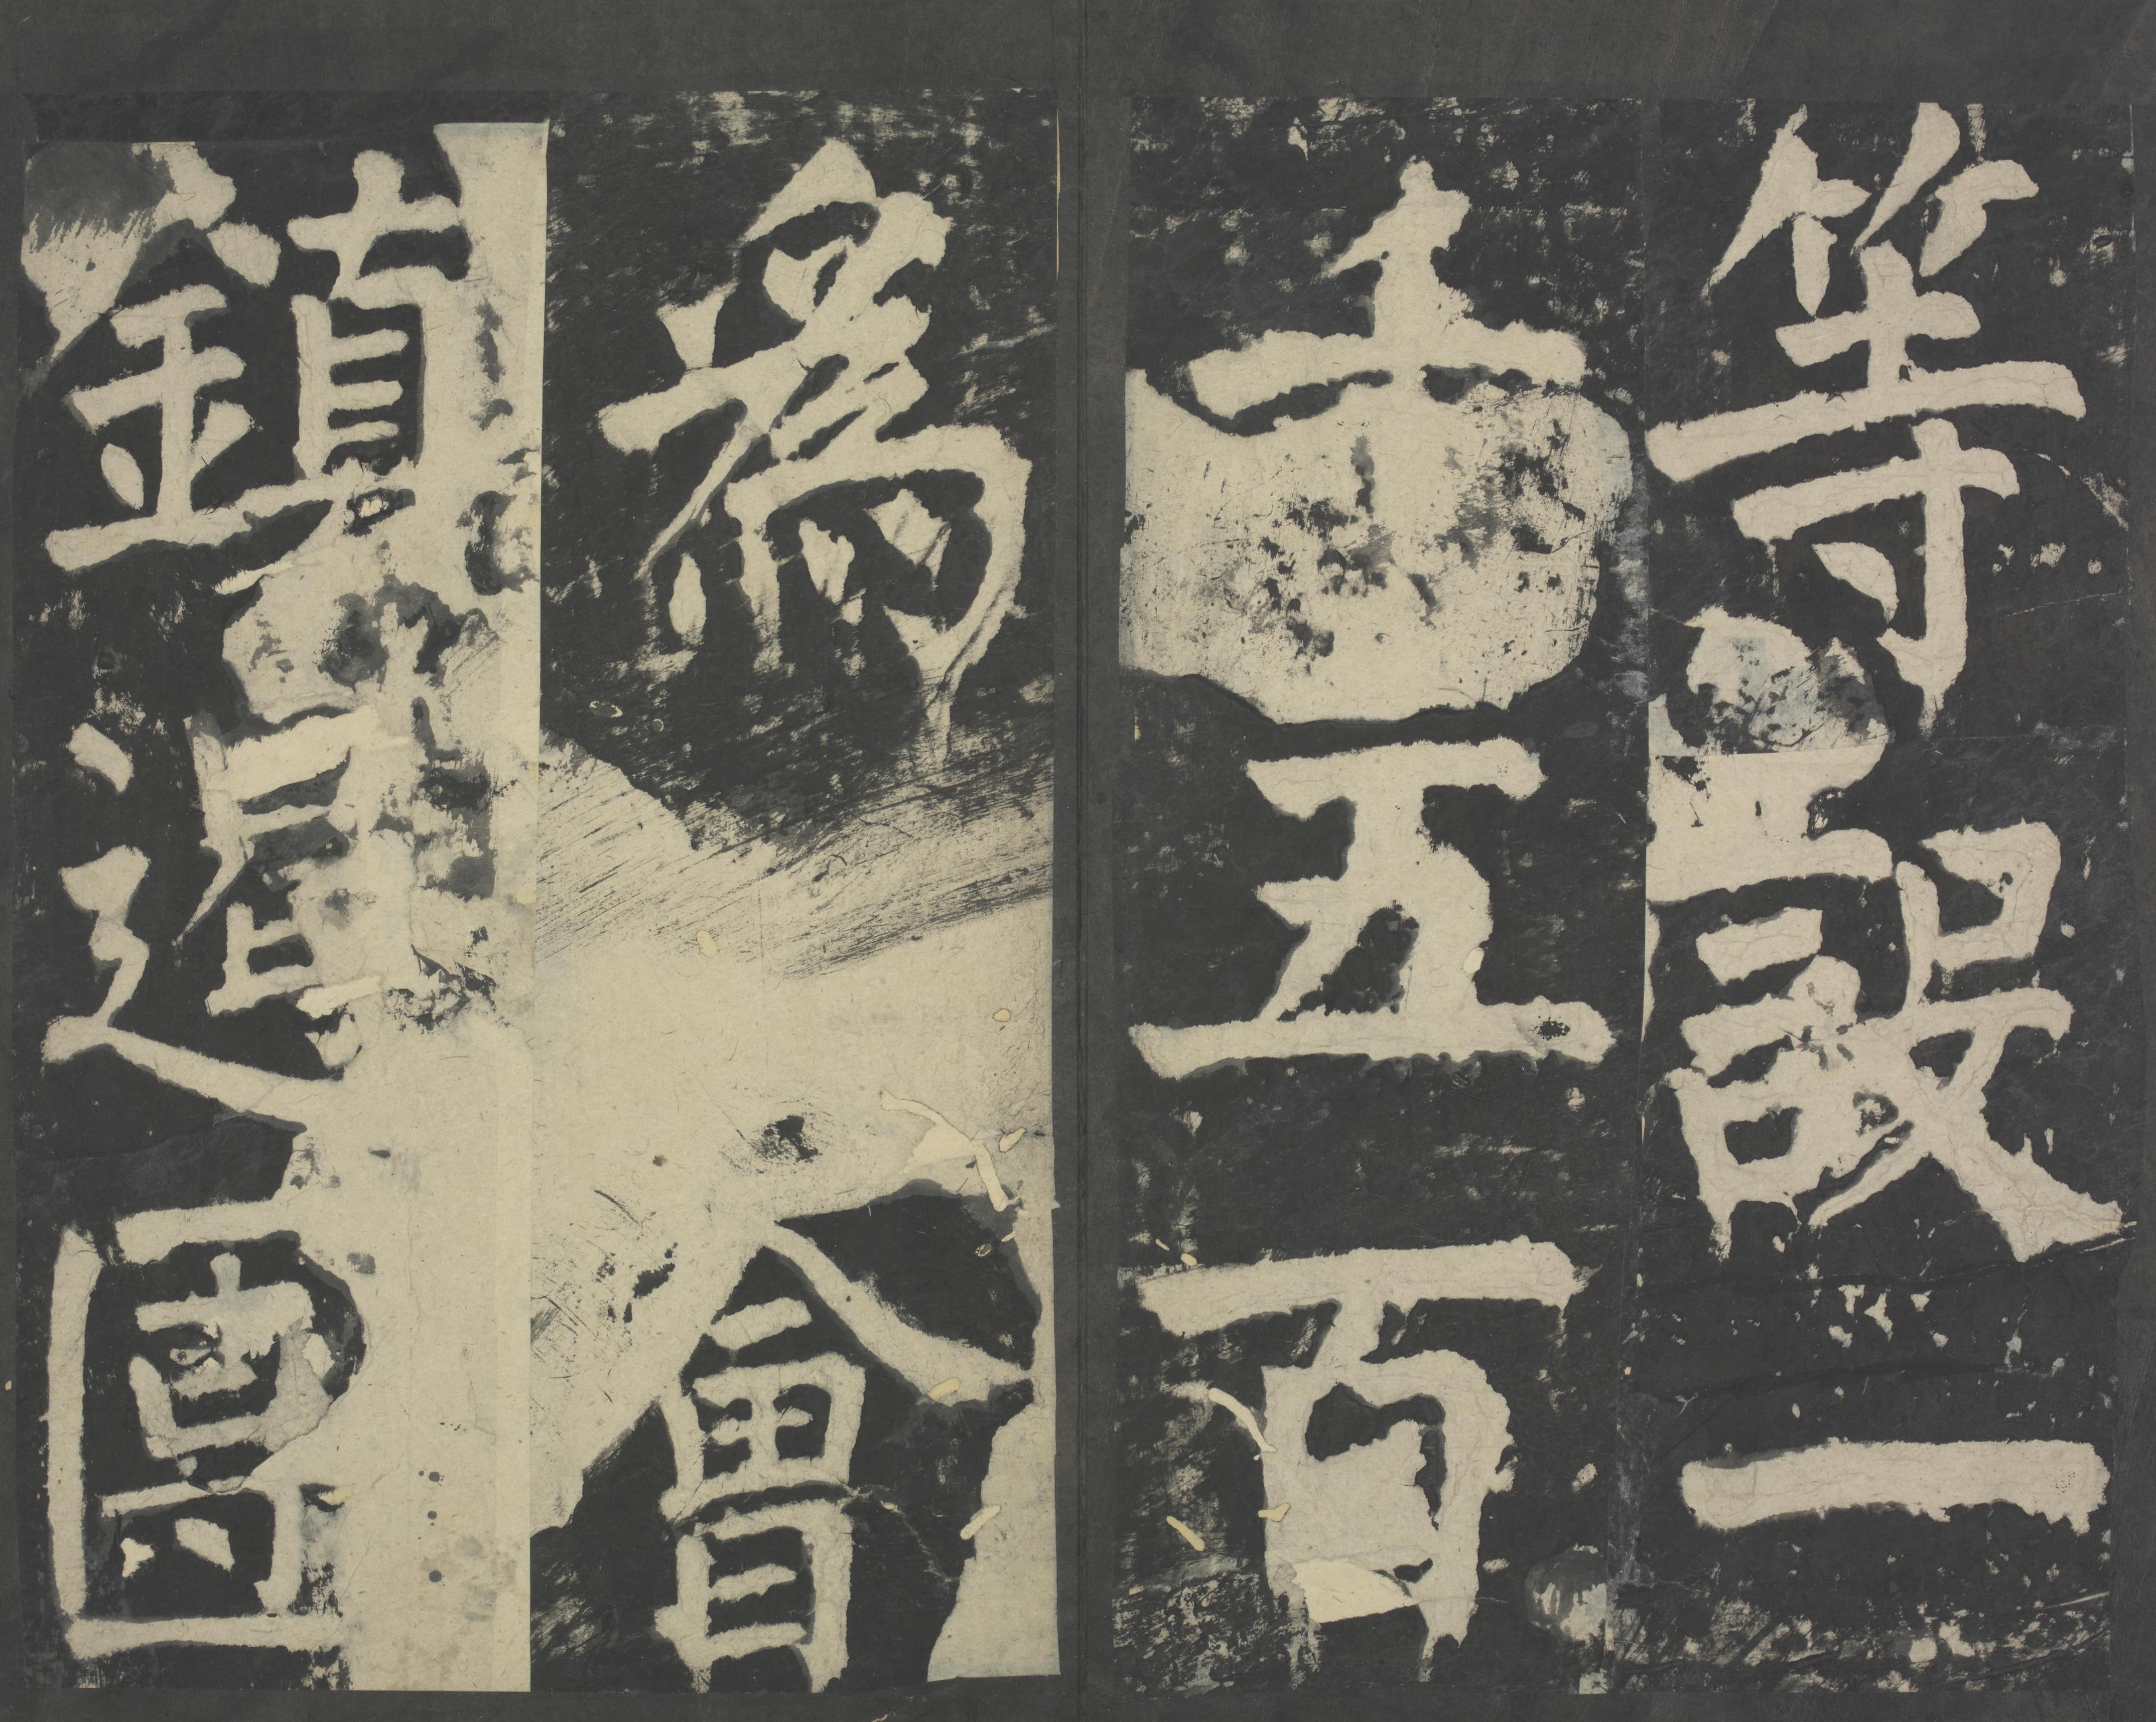 等設一
千五百
爲會
鎮遏團